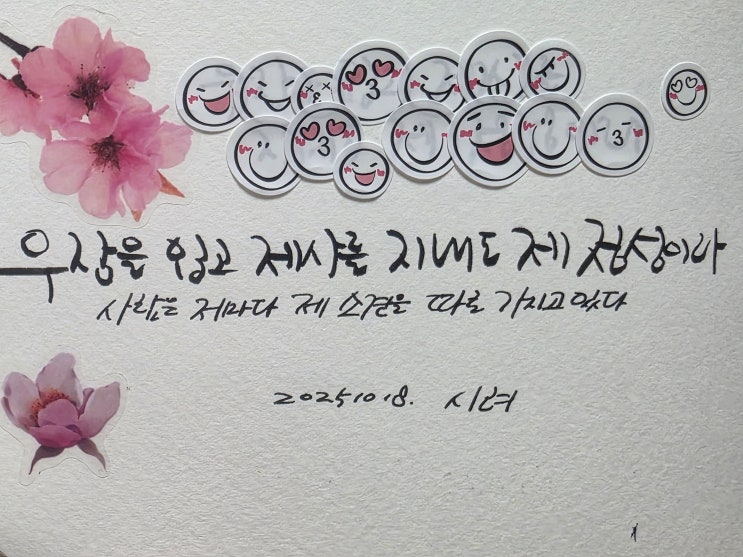 우장을 입고 제사를 지내도 제 정성이라
사람은 제마다 제 소견을 따로 가지고 있다
2025.10.18. 시려